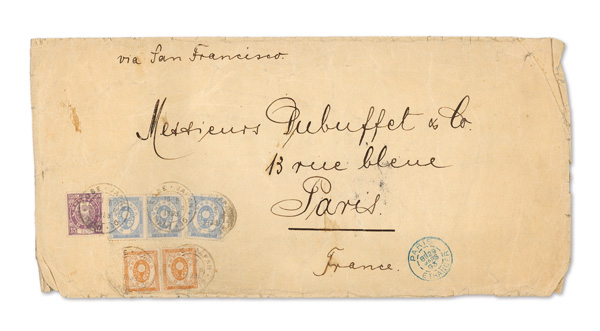 via San Francisco.
Messieurs Dubuffet & Co.
13 rue bleue
Paris.
France.
PARIS